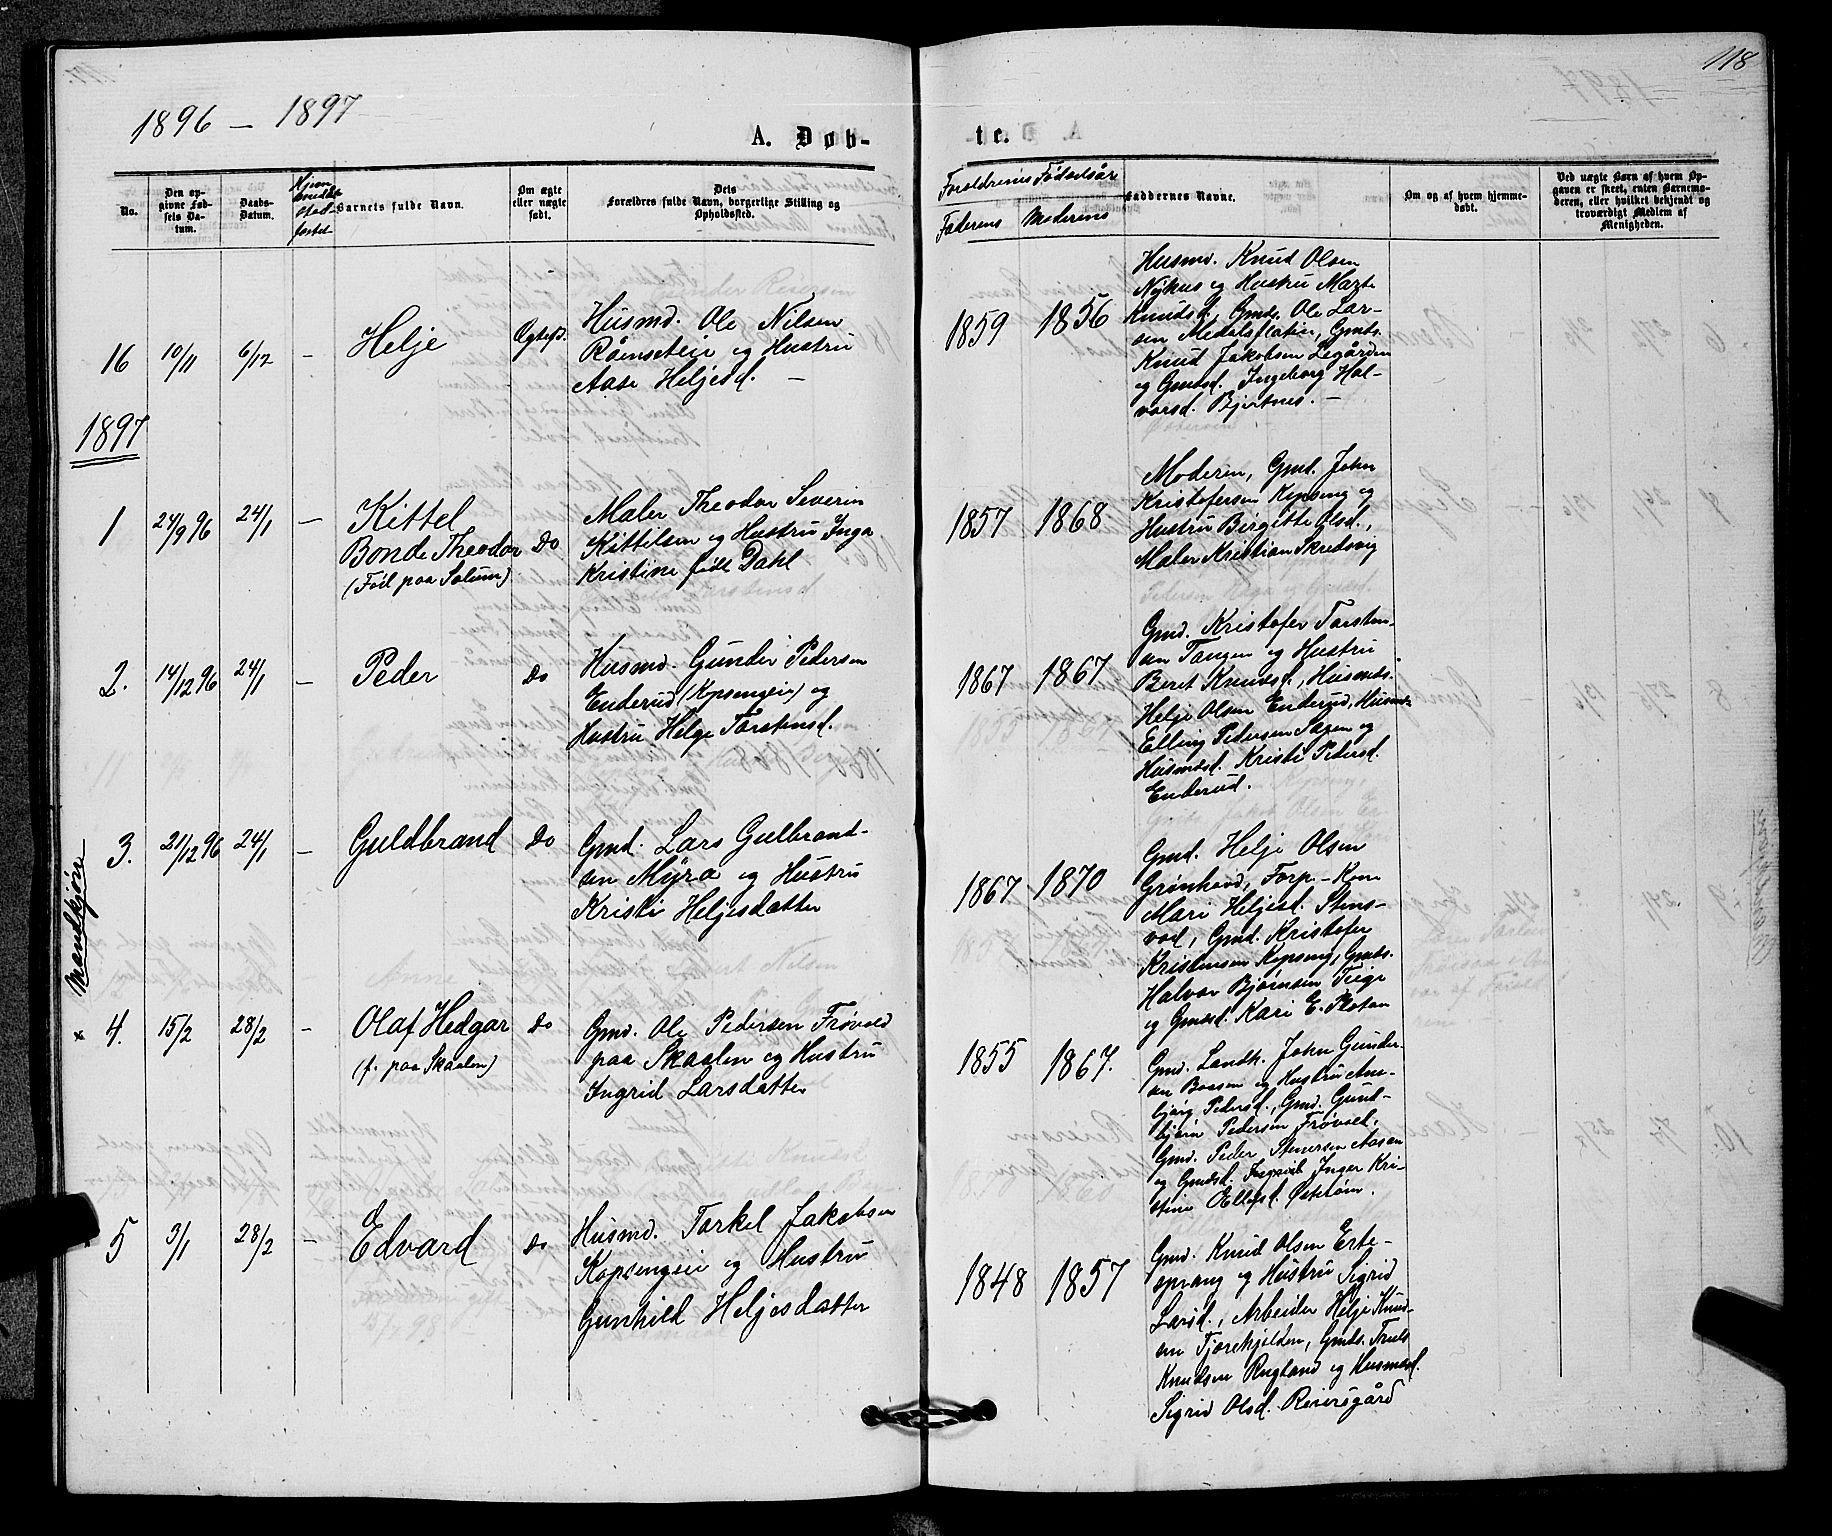 118
1896 – 1897
A. Døb-
te.
No.
Den op-
givne Fød-
sels Da-
tum.
Daabs-
Datum.
Barnets fulde Navn.
Om ægte
eller uægte
født.
Dets
Forældres fulde Navn, borgerlige Stilling og
Opholdssted.
Forældrenes Fødselsår
Faderens
Moderens
Faddernes Navne.
Om og af hvem hjemme-
døbt.
Ved uægte Barn af hvem Op-
gaven er skeet, enten Barnemo-
deren, eller hvilket bekjendt og
troværdigt Medlem af
Menigheden.
16 10/11 6/12 – Helje
Husmd. Ole Nilsen
og Hustru
Aase Heljesd. –
1859 1856
Husmd. Knud Olsen
og Hustru Marte
Knudsd., Gmds. Ole Lar-
sen Gmds.
Knud Jakobsen Legården
og Gmdsd. Ingeborg Hal-
vorsd. Bjertnes. –
1897
Mandkjøn
1 24/9 96 24/1 – Kittel
Bonde Theodor
(Fød paa Solum)
Do
Maler Theodor Severin
Kittelsen og Hustru Inga
Kristine født Dahl
1857 1868
Moderen, Gmd. John
Kristofersen Kopseng og
Hustru Birgitte Olsd.,
Maler Kristian Skredsvig
2. 14/12 96 24/1 – Peder Do
Husmd. Gunder Pedersen
Enderud (Kopsengeie) og
Hustru Helge Torstensd.
1867 1867
Gmd. Kristofer Torsten-
sen Tangen og Hustru
Beret Knudsd., Husmds.
Helje Olsen Enderud, Husmds.
Elling Pedersen Sagen og
Husmdsd. Kristi Pedersd.
Enderud.
3. 21/12 96 24/1 – Guldbrand Do
Gmd. Lars Gulbrand-
sen Myra og Hustru
Kristi Heljesdatter
1867 1870
Gmd. Helje Olsen
Grønhovd, Forp.-Kone
Mari Heljesd. Stens-
vod, Gmd. Kristofer
Kristensen Kopseng, Gmds.
Halvor Bjørnsen Teige
og Gmdsd. Kari E. Plotan
4. 15/2 28/2 – Olaf Hedgar
(f. paa Skaalen)
Do
Gmd. Ole Pedersen Frøvold
paa Skaalen og Hustru
Ingrid Larsdatter
1855 1867.
Gmd. Landh. John Gunder-
sen Braaten og Hustru Am-
bjørg Pedersd., Gmd. Gund-
bjørn Pedersen Frøvold,
Gmd. Peder Stenersen Aasen
og Gmdsd. Inger Kri-
stine Ellefsd.
5 3/1 28/2 – Edvard Do
Husmd. Torkel Jakobsen
Kopsengeie og Hustru
Gunhild Heljesdatter
1848 1857
Gmd. Knud Olsen Erte-
sprang og Hustru Sigrid
Larsd., Arbeider Helje Knud-
sen Tjorehjelden, Gmds. Truls
Knudsen Rugland og Husmdsd.
Sigrid Olsd. Reiersgård